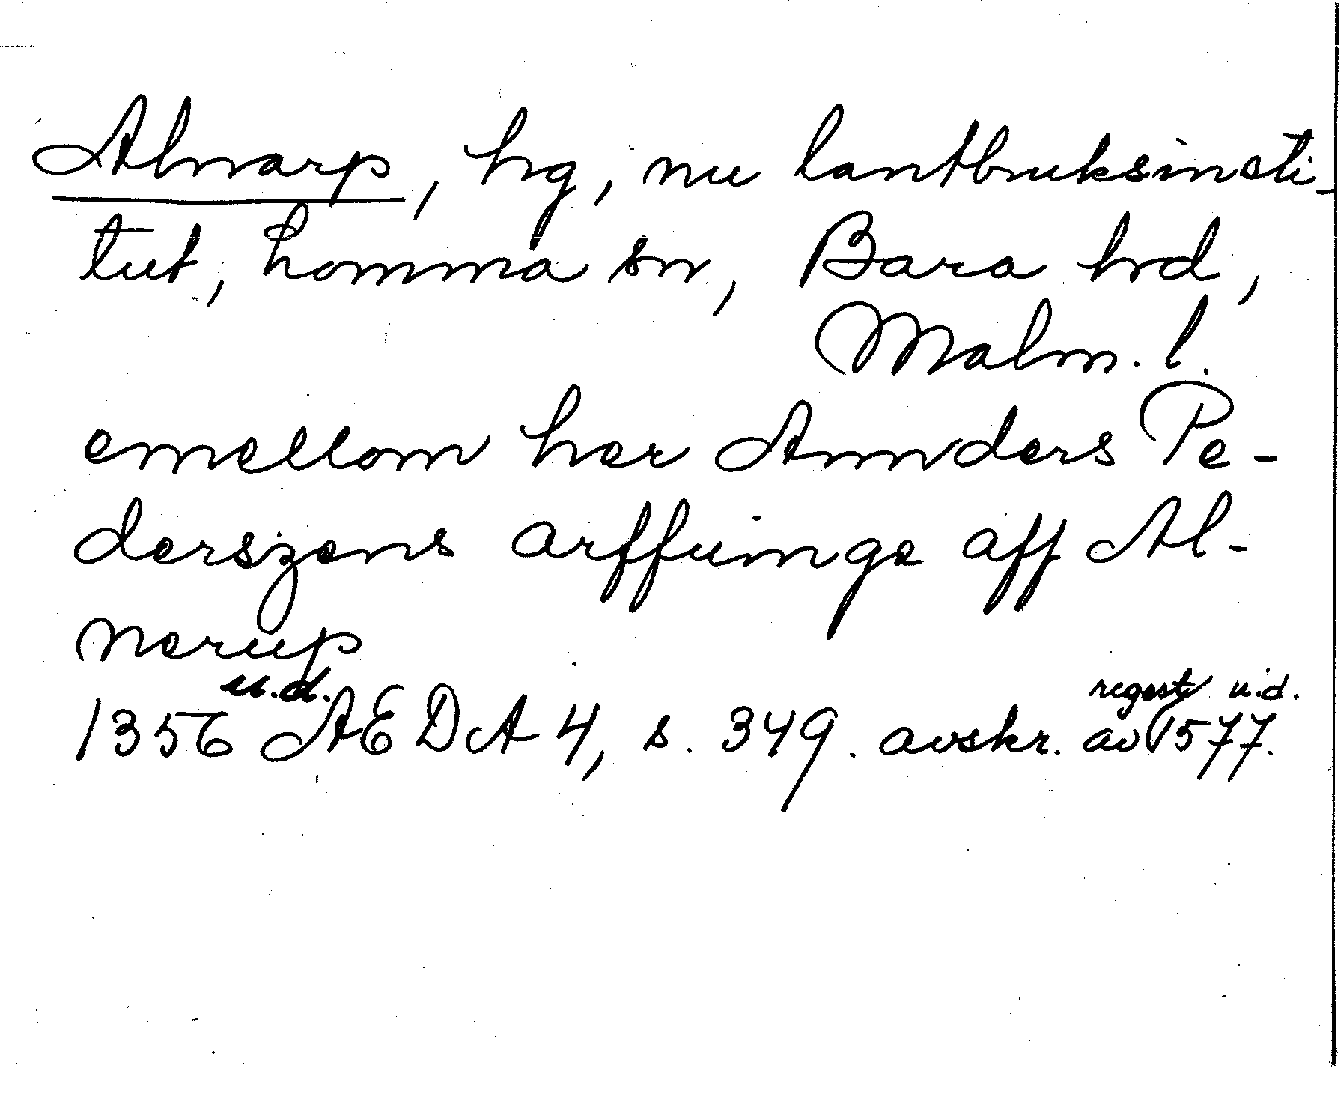 Alnarp, hg, nu lantbruksinsti-
tut, Lomma sn, Bara hrd,
Malm. l.
emellom her Annders Pe-
derszens arffuinge aff Al-
nerup
u.d. regest u.d.
1356 AEDA 4, s. 349. avskr. av 1577.